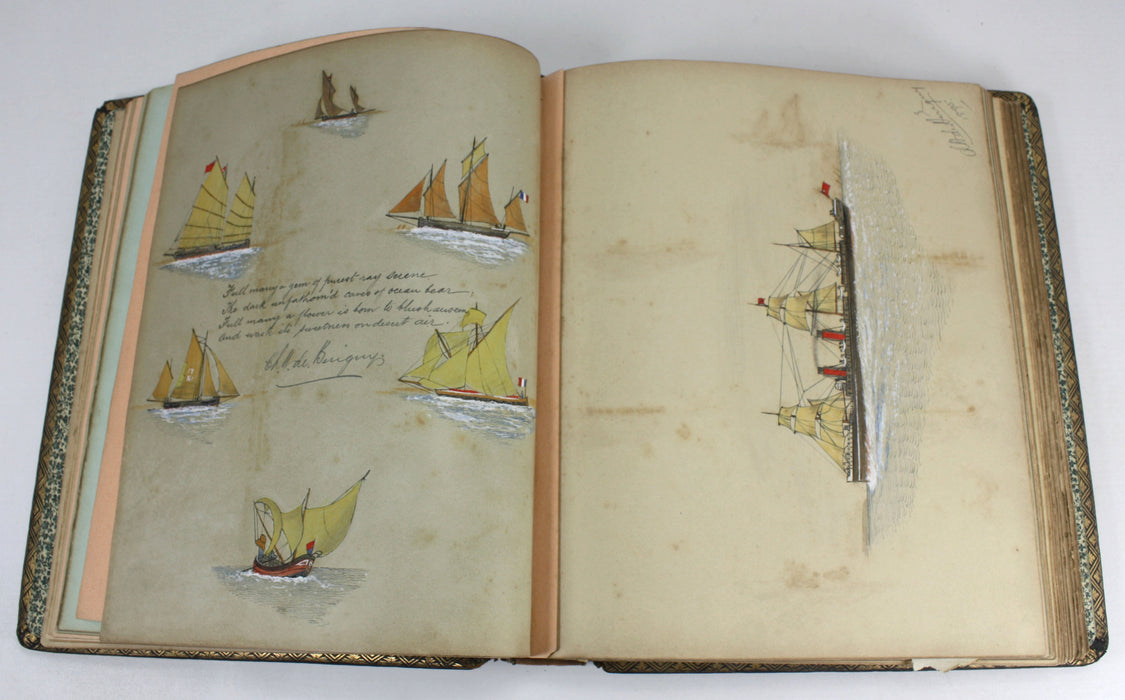 Full many a gem of purest ray serene
The dark unfathom'd caves of ocean bear;
Full many a flower is born to blush unseen
And waste its sweetness on desert air.
de